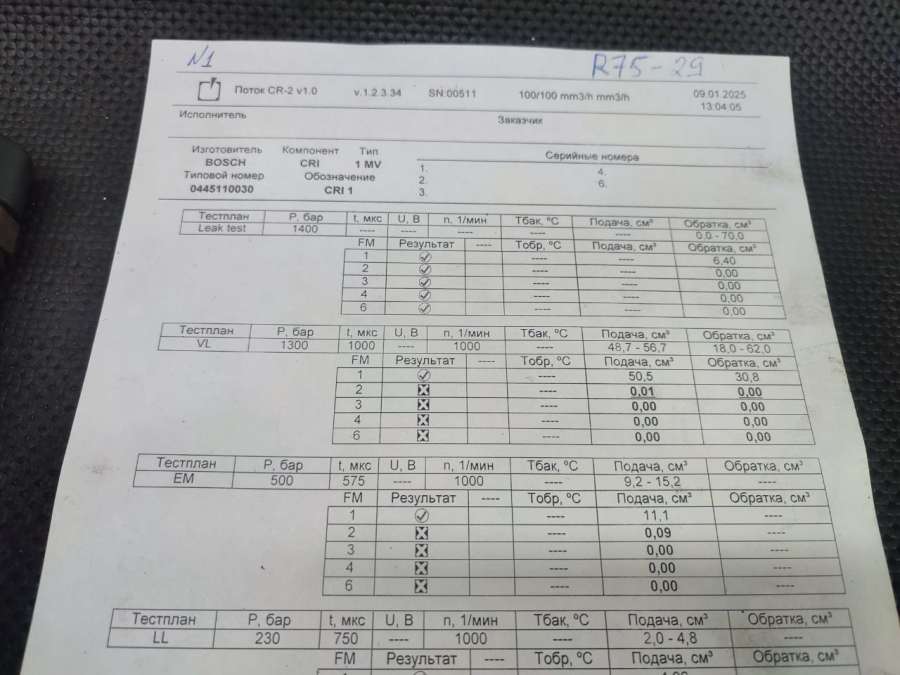 N1 R75-29
Поток CR-2 v1.0 v.1.2.3.34 SN:00511 100/100 mm3/h mm3/h 09.01.2025
13:04:05
Исполнитель Заказчик
Изготовитель Компонент Тип Серийные номера
BOSCH CRI 1 MV 1. 4.
Типовой номер Обозначение 2. 6.
0445110030 CRI 1 3.
Тестплан P, бар t, мкс U, В n, 1/мин Тбак, ºC Подача, см³ Обратка, см³
Leak test 1400 ---- ---- ---- ---- ---- 0,0 - 70,0
FM Результат ---- Тобр, ºC Подача, см³ Обратка, см³
1 ---- ---- 6,40
2 ---- ---- 0,00
3 ---- ---- 0,00
4 ---- ---- 0,00
6 ---- ---- 0,00
Тестплан P, бар t, мкс U, В n, 1/мин Тбак, ºC Подача, см³ Обратка, см³
VL 1300 1000 ---- 1000 ---- 48,7 - 56,7 18,0 - 62,0
FM Результат ---- Тобр, ºC Подача, см³ Обратка, см³
1 ---- 50,5 30,8
2 ---- 0,01 0,00
3 ---- 0,00 0,00
4 ---- 0,00 0,00
6 ---- 0,00 0,00
Тестплан P, бар t, мкс U, В n, 1/мин Тбак, ºC Подача, см³ Обратка, см³
EM 500 575 ---- 1000 ---- 9,2 - 15,2 ----
FM Результат ---- Тобр, ºC Подача, см³ Обратка, см³
1 ---- 11,1 ----
2 ---- 0,09 ----
3 ---- 0,00 ----
4 ---- 0,00 ----
6 ---- 0,00 ----
Тестплан P, бар t, мкс U, В n, 1/мин Тбак, ºC Подача, см³ Обратка, см³
LL 230 750 ---- 1000 ---- 2,0 - 4,8 ----
FM Результат ---- Тобр, ºC Подача, см³ Обратка, см³